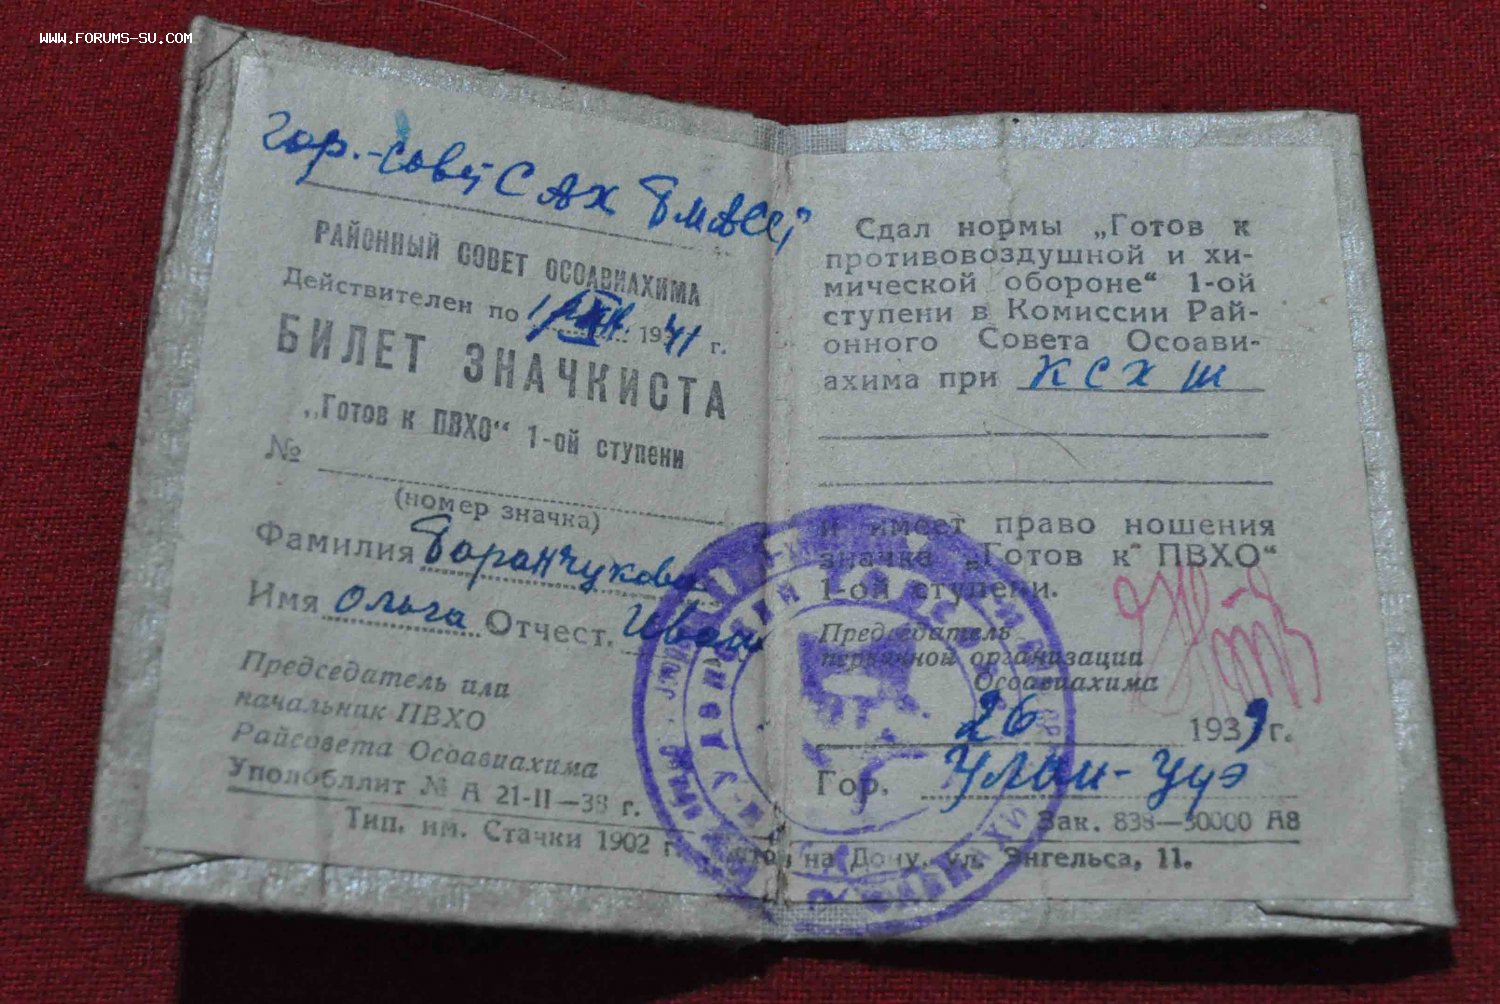 WWW.FORUMS-SU.COM
Гор.-совет ОАХ БМАССР
РАЙОННЫЙ СОВЕТ ОСОАВИАХИМА
Действителен по 1941 г.
БИЛЕТ ЗНАЧКИСТА
„Готов к ПВХО“ 1-ой ступени
№
(номер значка)
Фамилия Баранчукова
Имя Ольга Отчест. Иван
Председатель или
начальник ПВХО
Райсовета Осоавиахима
Уполобллит № А 21-II—38 г.
Тип. им. Стачки 1902 г.
Сдал нормы „Готов к
противовоздушной и хи-
мической обороне“ 1-ой
ступени в Комиссии Рай-
онного Совета Осоави-
ахима при КСХШ
и имеет право ношения
значка „Готов к ПВХО“
1-ой ступени.
Председатель
первичной организации
Осоавиахима
26 1939 г.
Гор. Улан-Удэ
Зак. 838—50000 А8
на Дону, ул. Энгельса, 11.